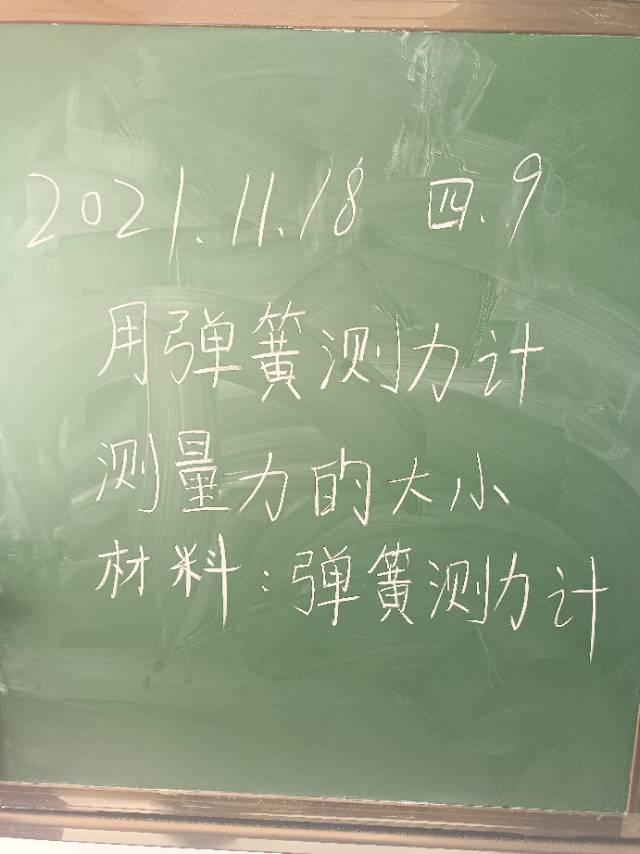 2021.11.18 四.9
用弹簧测力计
测量力的大小
材料:弹簧测力计